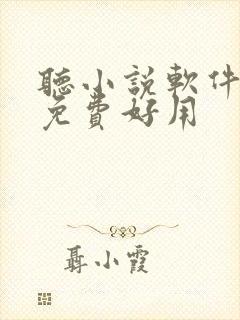 聽小說軟件
免費好用
聶小霞